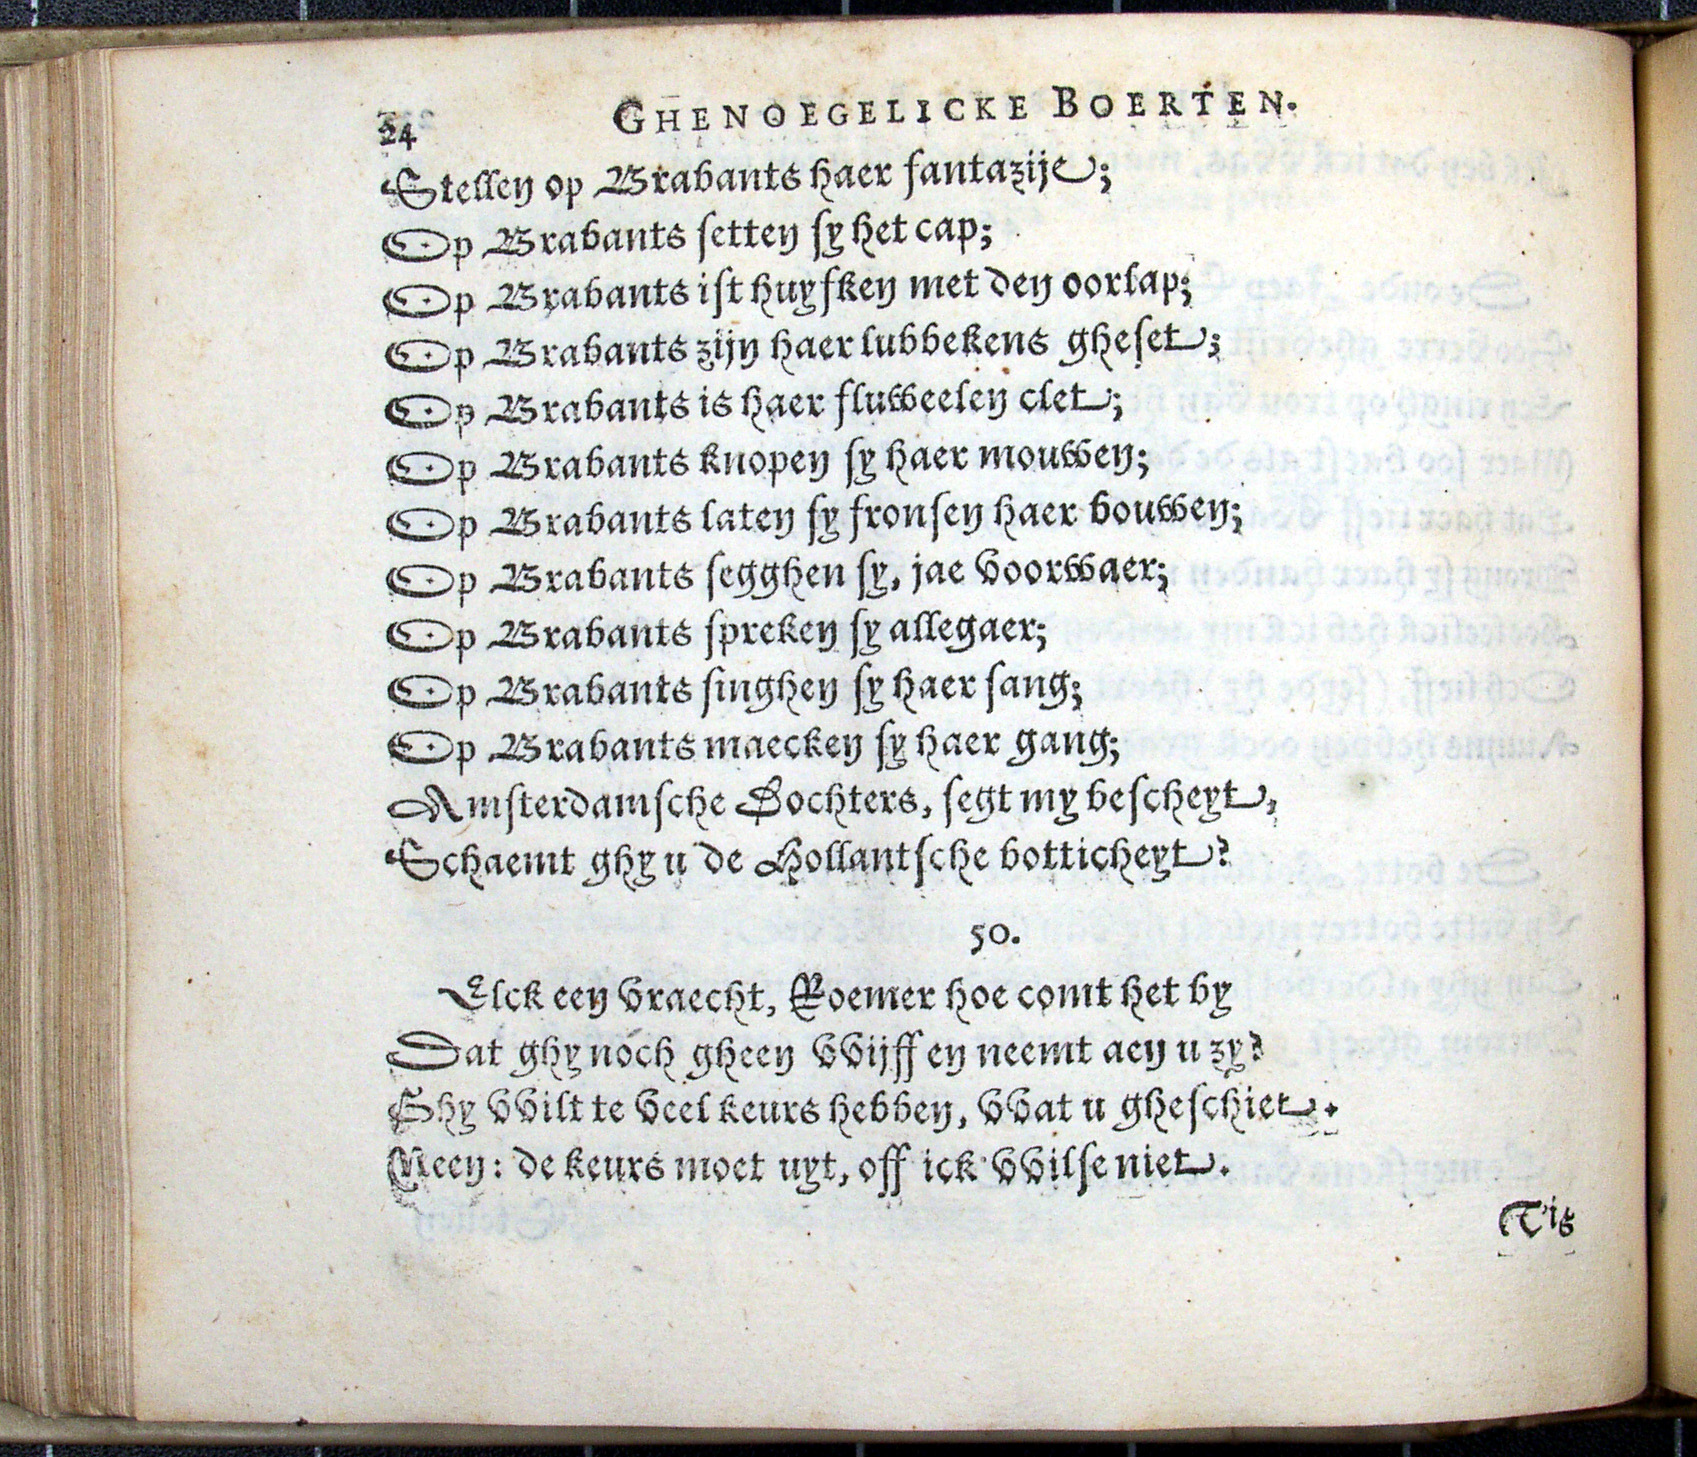 24 GHENOEGELICKE BOERTEN.
Stellen op Brabants haer fantazije;
Op Brabants setten sy het cap;
Op Brabants ist huysken met den oorlap;
Op Brabants zijn haer lubbekens gheset;
Op Brabants is haer fluweelen clet;
Op Brabants knopen sy haer mouwen;
Op Brabants laten sy fronsen haer bouwen;
Op Brabants segghen sy, jae voorwaer;
Op Brabants spreken sy allegaer;
Op Brabants singhen sy haer sang;
Op Brabants maecken sy haer gang;
Amsterdamsche Dochters, segt my bescheyt,
Schaemt ghy u de Hollantsche botticheyt?
50.
Elck een vraecht, Roemer hoe comt het by
Dat ghy noch gheen vvijff en neemt aen u zy?
Ghy vvilt te veel keurs hebben, vvat u gheschiet.
Neen: de keurs moet uyt, off ick vvilse niet.
T'is